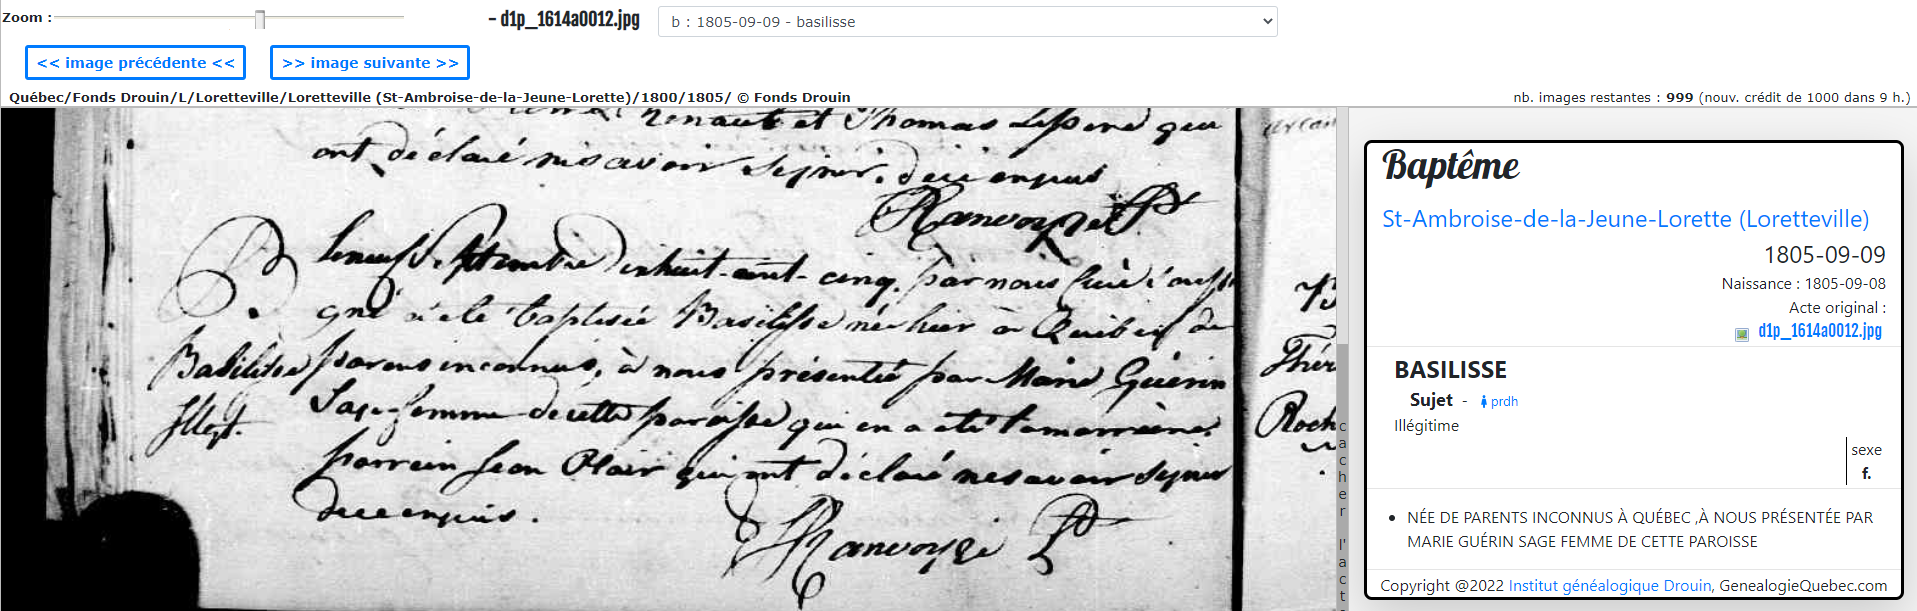 Zoom :
- d1p_1614a0012.jpg
b : 1805-09-09 - basilisse
<< image précédente <<
>> image suivante >>
Québec/Fonds Drouin/L/Loretteville/Loretteville (St-Ambroise-de-la-Jeune-Lorette)/1800/1805/ © Fonds Drouin
nb. images restantes : 999 (nouv. crédit de 1000 dans 9 h.)
Renault et Thomas Lespere qui
ont déclaré ne savoir signer. de ce enquis
Ranvoyzé Ptr.
B.
Basilisse
Illegt.
le neuf Septembre dix huit-cent-cinq, par nous Curé souss
gné a été baptisée Basilisse née hier à Quebec de
parens inconnus, à nous présentée par Marie Guérin
Sage-femme de cette paroisse qui en a été la marraine.
parrein Jean Plair qui ont déclaré ne savoir signer
de ce enquis.
Ranvoyzé Ptr
Thér
Roch
cacher l'acte
Baptême
St-Ambroise-de-la-Jeune-Lorette (Loretteville)
1805-09-09
Naissance : 1805-09-08
Acte original :
d1p_1614a0012.jpg
BASILISSE
Sujet - prdh
Illégitime
sexe
f.
• NÉE DE PARENTS INCONNUS À QUÉBEC ,À NOUS PRÉSENTÉE PAR
MARIE GUÉRIN SAGE FEMME DE CETTE PAROISSE
Copyright @2022 Institut généalogique Drouin, GenealogieQuebec.com